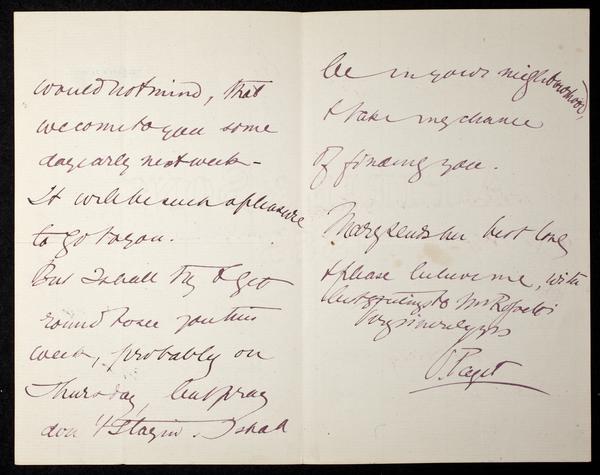 would not mind, that
we come to you some
day early next week -
It will be such a pleasure
to go to you.
But I shall try & get
round to see you this
week, probably on
Thursday, but pray
don't stay in. I shall
be in your neighbourhood,
& take my chance
of finding you.
Mary sends her best love
& please believe me, with
best greetings to Mr Rossetti
Very sincerely yrs
Paget